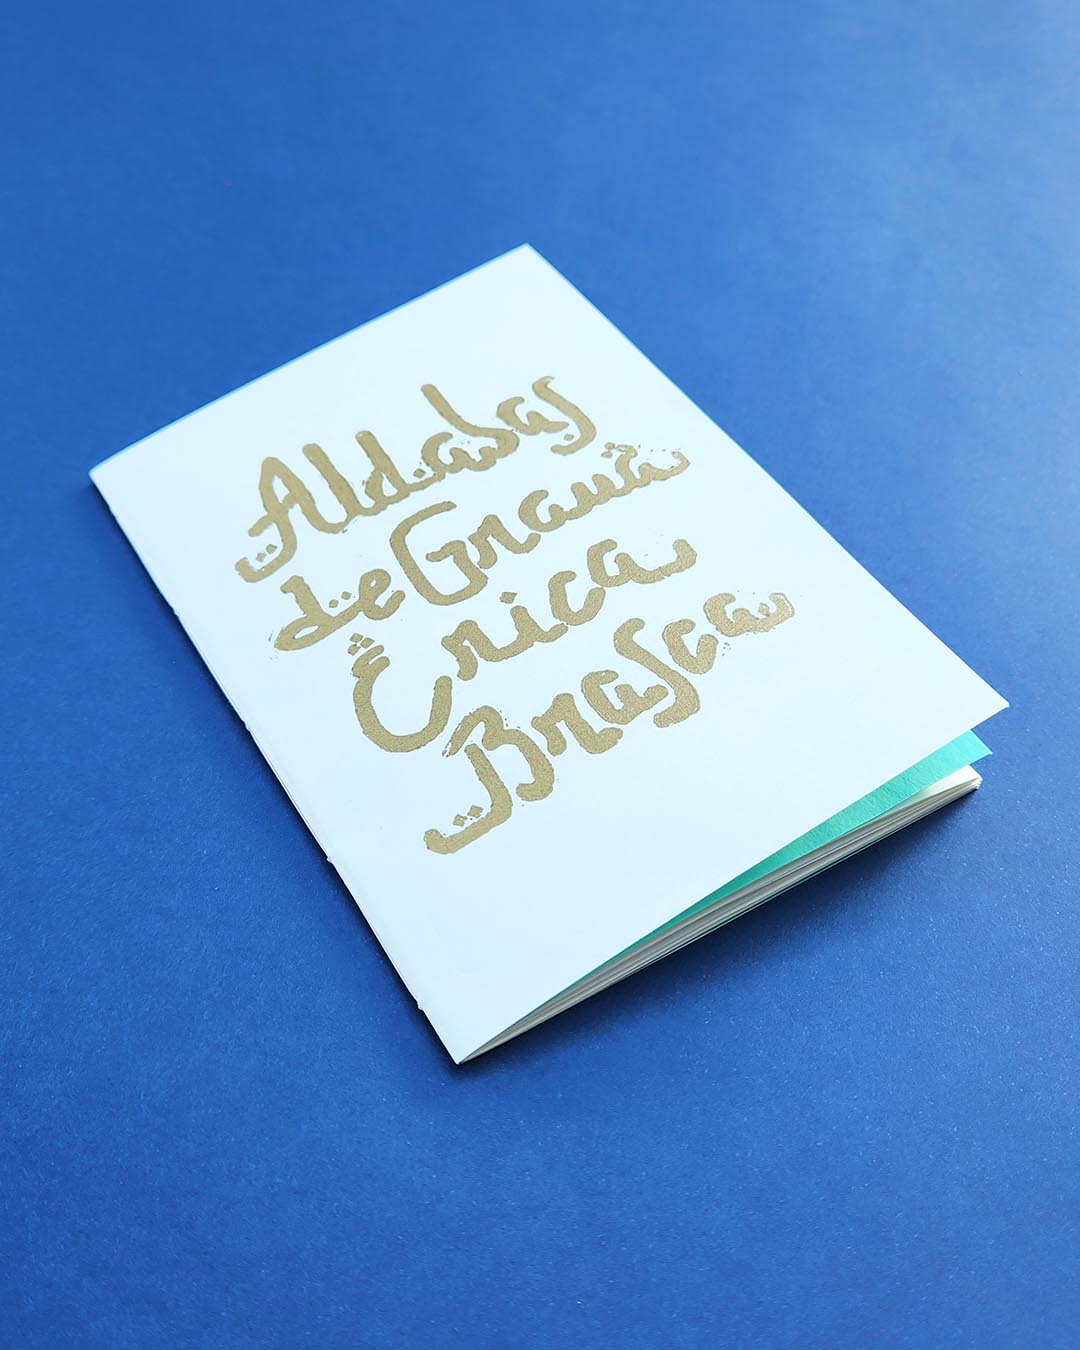 Aldabas
de Grana
Erica
Brasca